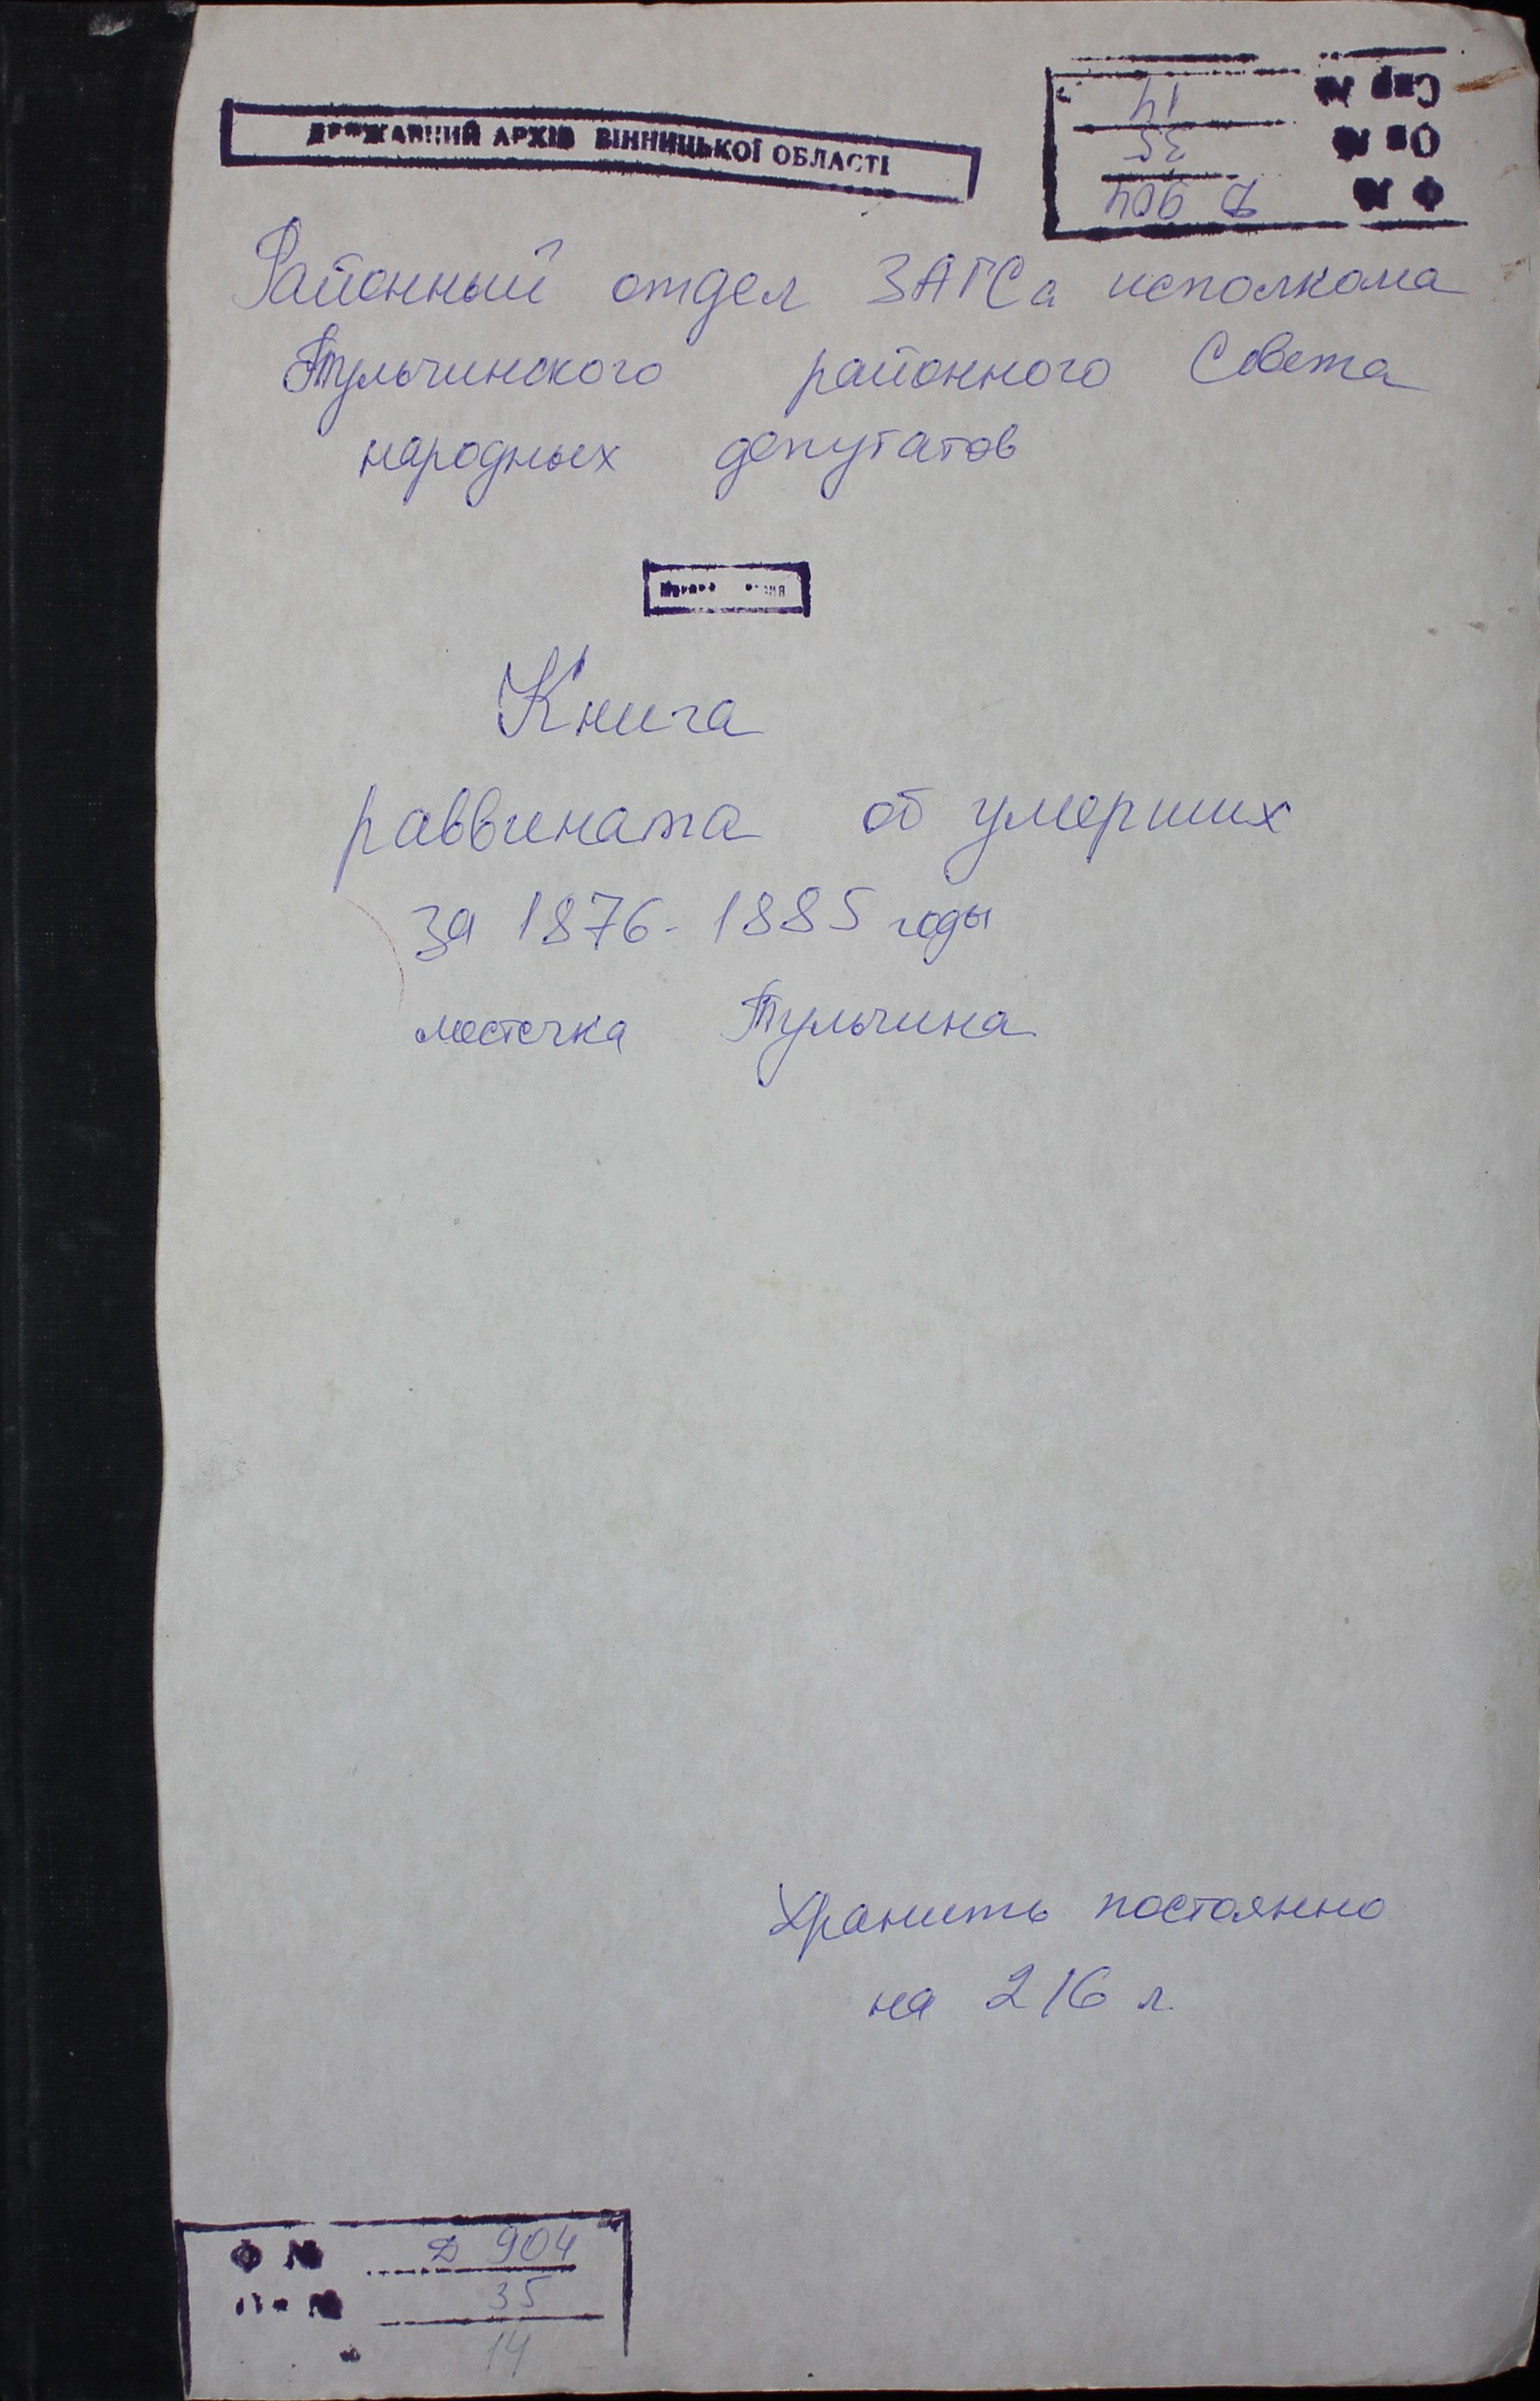 ДЕРЖАВНИЙ АРХІВ ВІННИЦЬКОЇ ОБЛАСТІ
Ф № Д 904
Оп № 35
Спр № 14
Районный отдел ЗАГСа исполкома
Тульчинского районного Совета
народных депутатов
Книга
раввината об умерших
за 1876-1885 годы
местечка Тульчина
Хранить постоянно
на 216 л.
Ф № Д 904
35
14